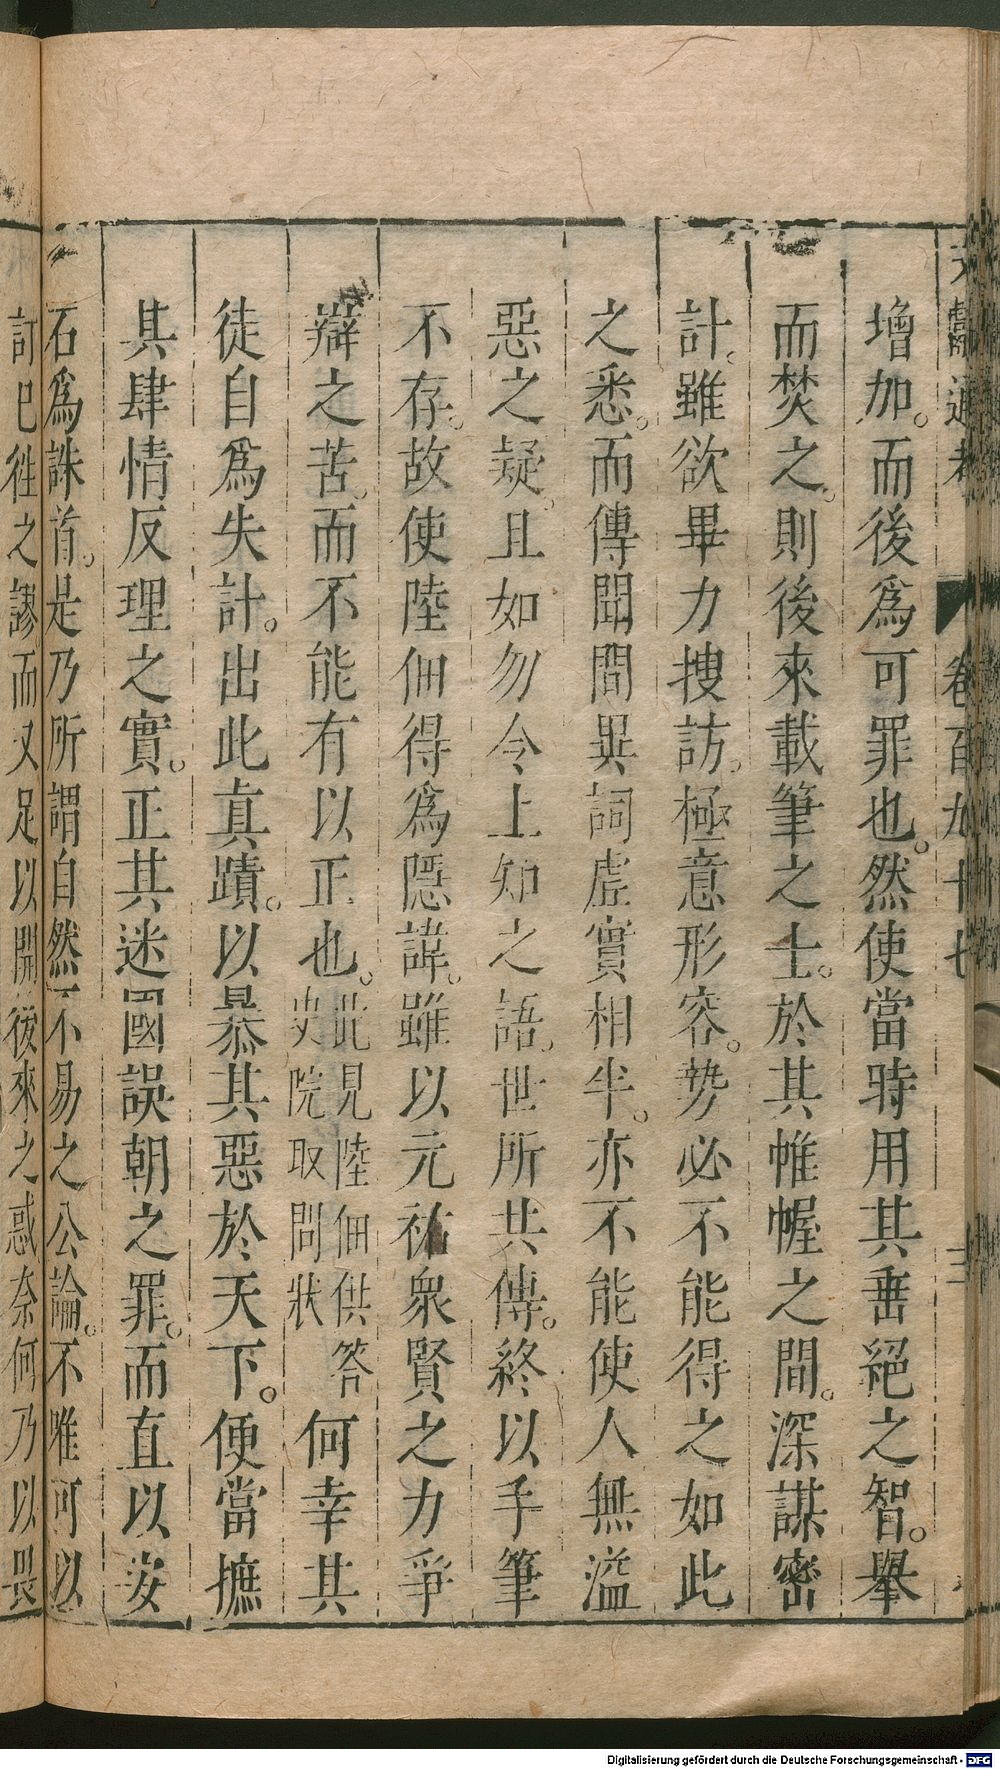 文獻通考 卷百九十七 三
增加。而後爲可罪也。然使當時用其垂絕之智。舉
而焚之。則後來載筆之士。於其帷幄之間。深謀密
計。雖欲畢力搜訪。極意形容。勢必不能得之如此
之悉。而傳聞間異詞虛實相半。亦不能使人無溢
惡之疑。且如勿令上知之語。世所共傳。終以手筆
不存。故使陸佃得爲隱諱。雖以元祐衆賢之力爭
辯之苦。而不能有以正也。此見陸佃供答史院取問狀何幸其
徒自爲失計。出此真蹟。以暴其惡於天下。便當摭
其肆情反理之實。正其迷國誤朝之罪。而直以安
石爲誅首。是乃所謂自然不易之公論。不唯可以
訂已往之謬而又足以開後來之惑奈何乃以畏
Digitalisierung gefördert durch die Deutsche Forschungsgemeinschaft - DFG